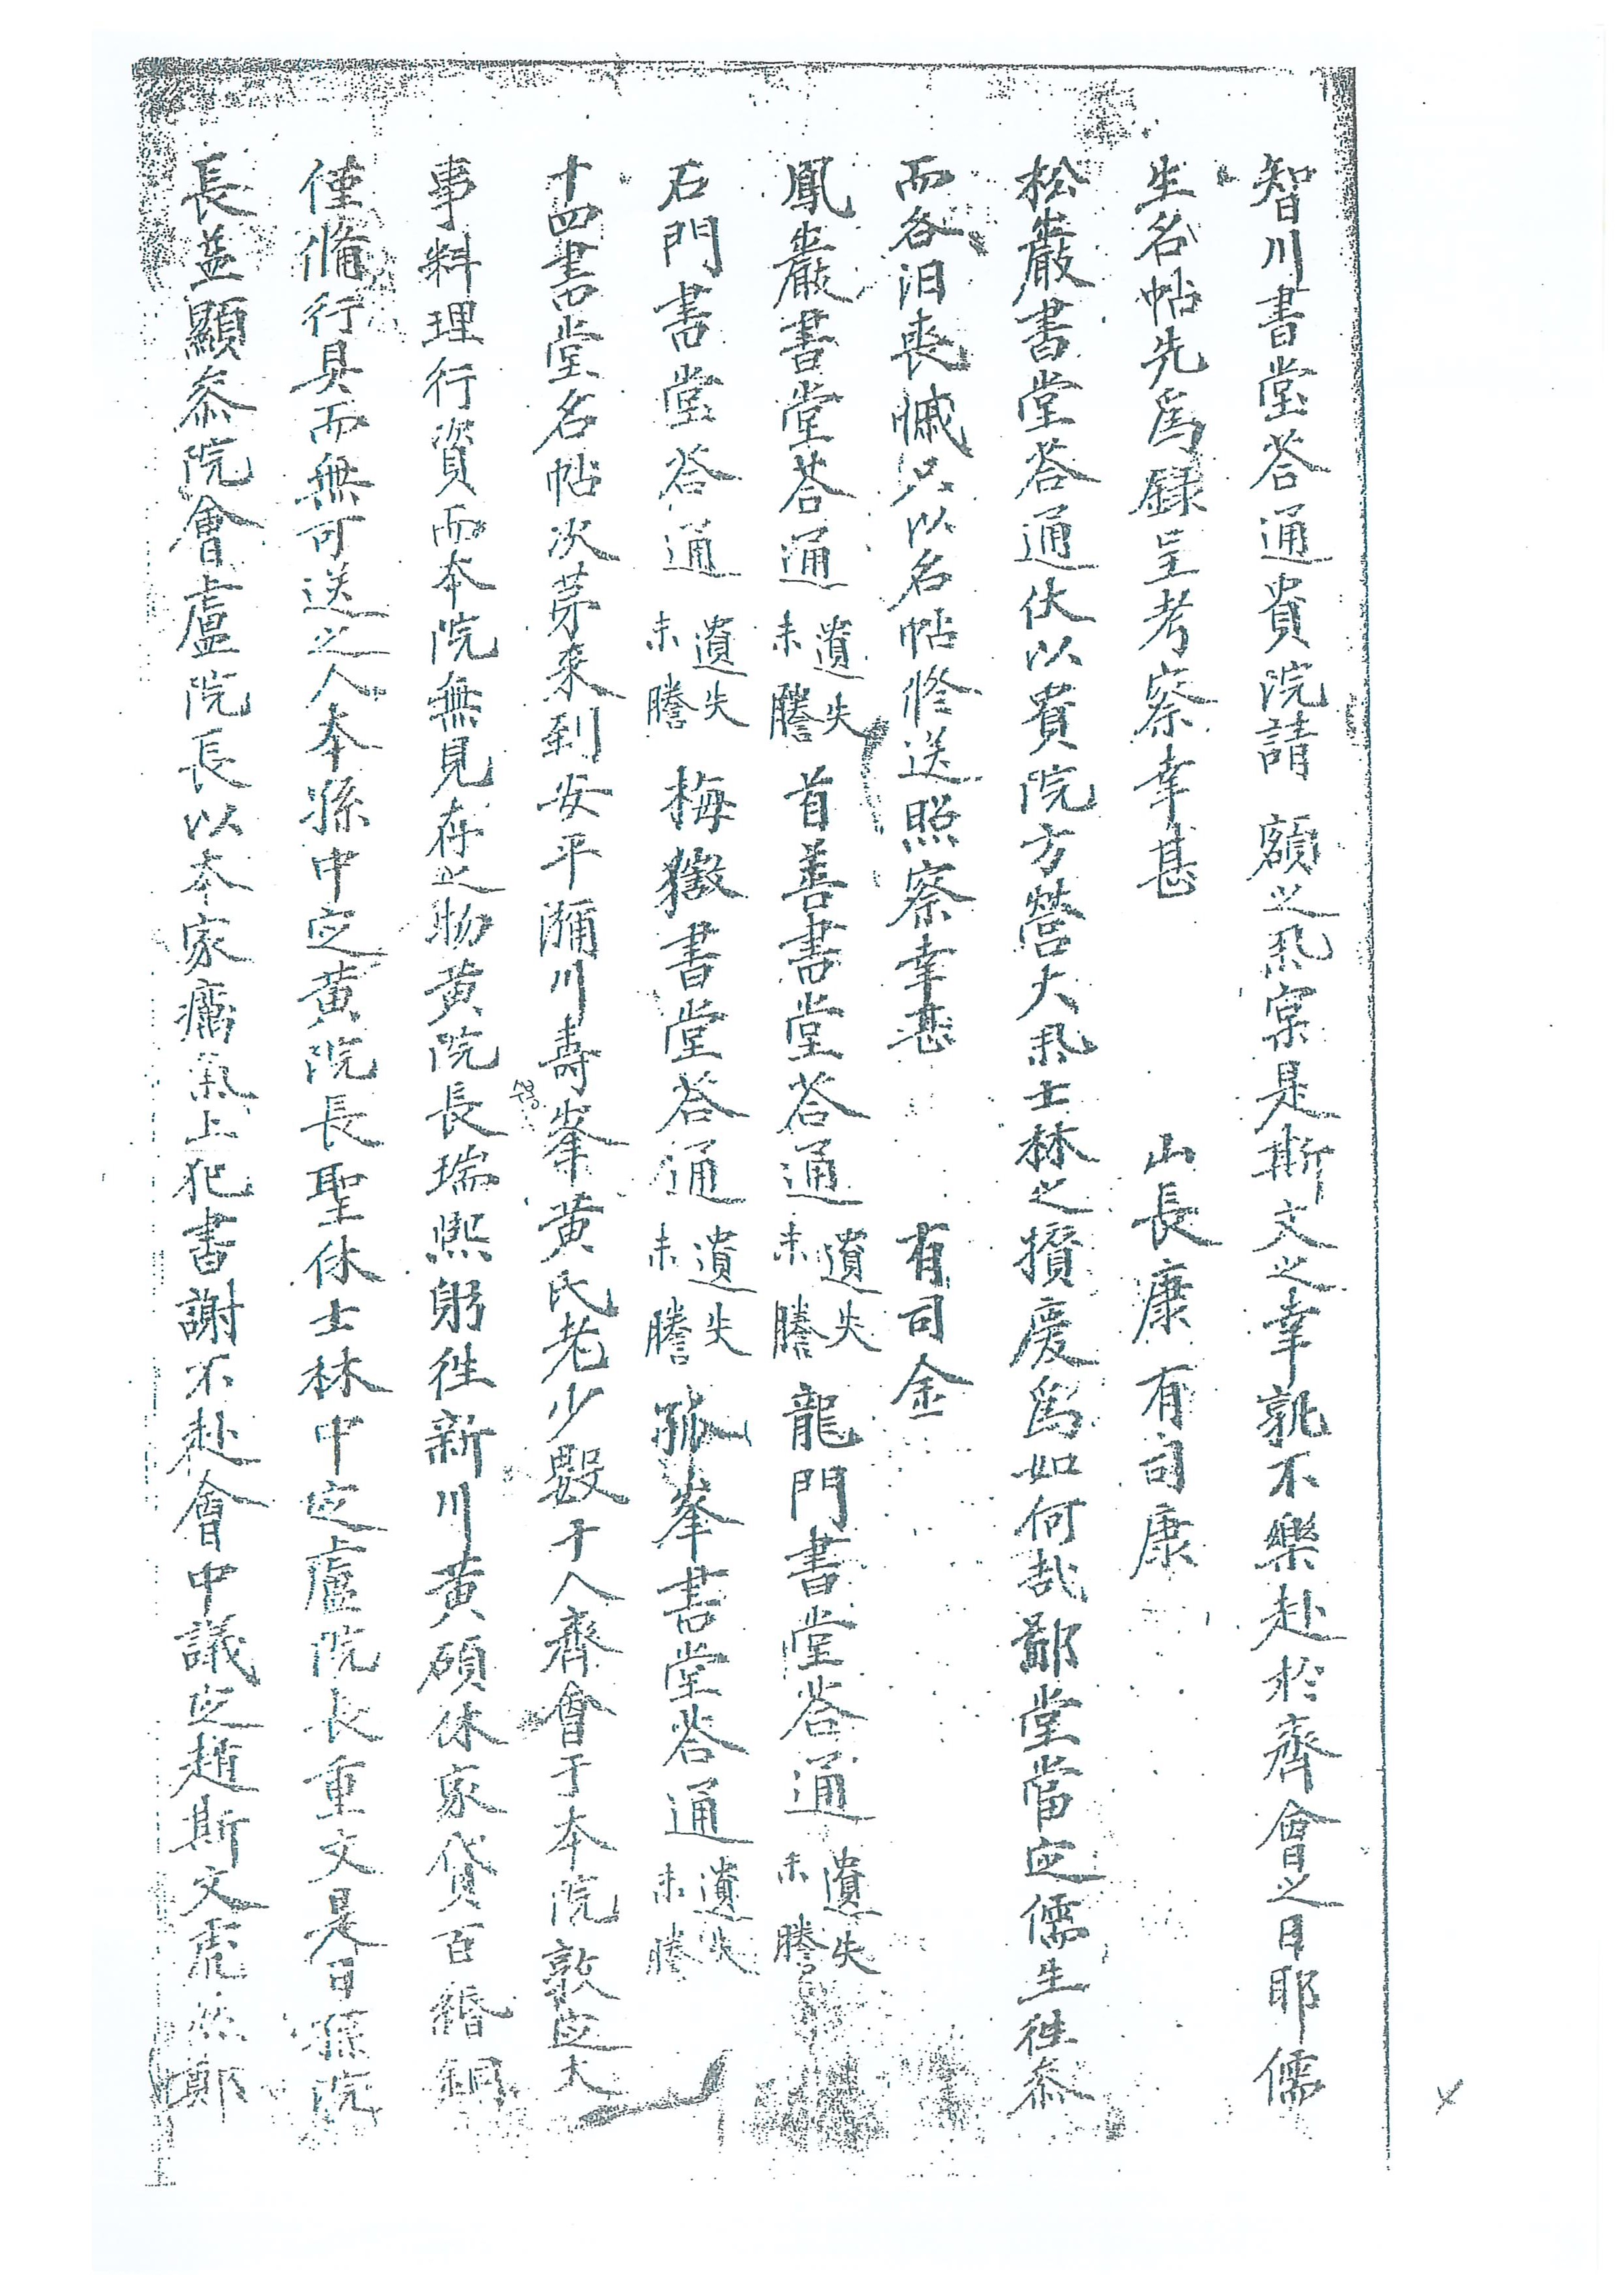 智川書堂答通貴院請 額之擧寔是斯文之幸孰不樂赴於齊會之日耶儒
生名帖先爲錄呈考察幸甚 山長康 有司康
松巖書堂答通伏以貴院方營大擧士林之攢慶爲如何哉鄙堂當定儒生徃叅
而各汨喪慽只以名帖修送照察幸甚 有司金
鳳巖書堂答通 遺失未謄 首善書堂答通 遺失未謄 龍門書堂答通 遺失未謄
石門書堂答通 遺失未謄 梅獄書堂答通 遺失未謄 孤峯書堂答通 遺失未謄
十四書堂名帖次苐來到安平瀰川壽峯黃氏老少數十人齊會于本院敦定大
事料理行資而本院無見存之物黃院長瑞熙躬徃新川黃碩休家貸百緡銅
僅備行具而無可送之人本孫中定黃院長聖休士林中定盧院長重文是日孫院
長益顯叅院會盧院長以本家癘氣上犯書謝不赴會中議定趙斯文虎然鄭